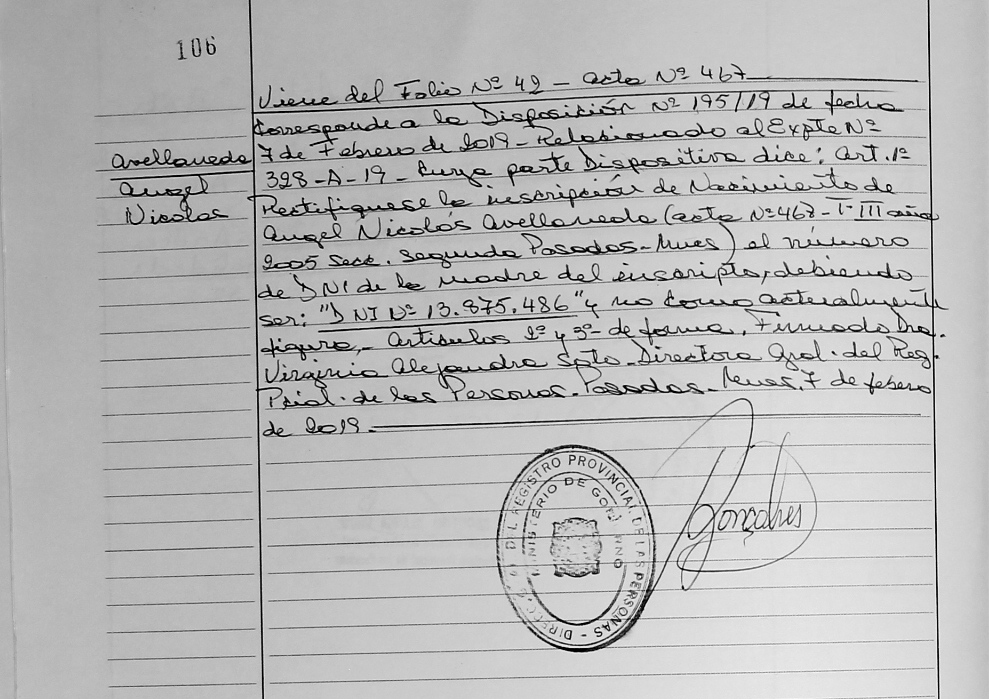 106
Viene del Folio Nº 42 - acta Nº 467
Corresponde a la Disposición Nº 195/19 de fecha
7 de Febrero de 2019 - Relacionado al Expte Nº
328-A-19 - Cuya parte Dispositiva dice: Art. 1º
Rectifiquese la inscripción de Nacimiento de
Angel Nicolás Avellaneda (acta Nº 467 - T-III año
2005 Secc. segunda Posadas - Mnes) el número
de DNI de la madre del inscripto, debiendo
ser: "DNI Nº 13.875.486" y no como actualmente
figura. - Articulos 2º y 3º de forma. Firmado Dra.
Virginia Alejandra Soto - Directora Gral. del Reg.
Pcial. de las Personas - Posadas - Mnes. 7 de febrero
de 2019.
Avellaneda
Angel
Nicolas
DEL REGISTRO PROVINCIAL DE LAS PERSONAS
MINISTERIO DE GOBIERNO
Gonçalves